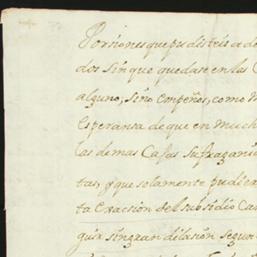 Porsiones que pudistris a de
dos sin que quedase en las C
alguno, sino conpeños, como
Esperansa de que en much
las demas Casas sufragani
tas, y que solamente pudier
ta exaccion del subsidio Ca
guir sin gran dilasion segur